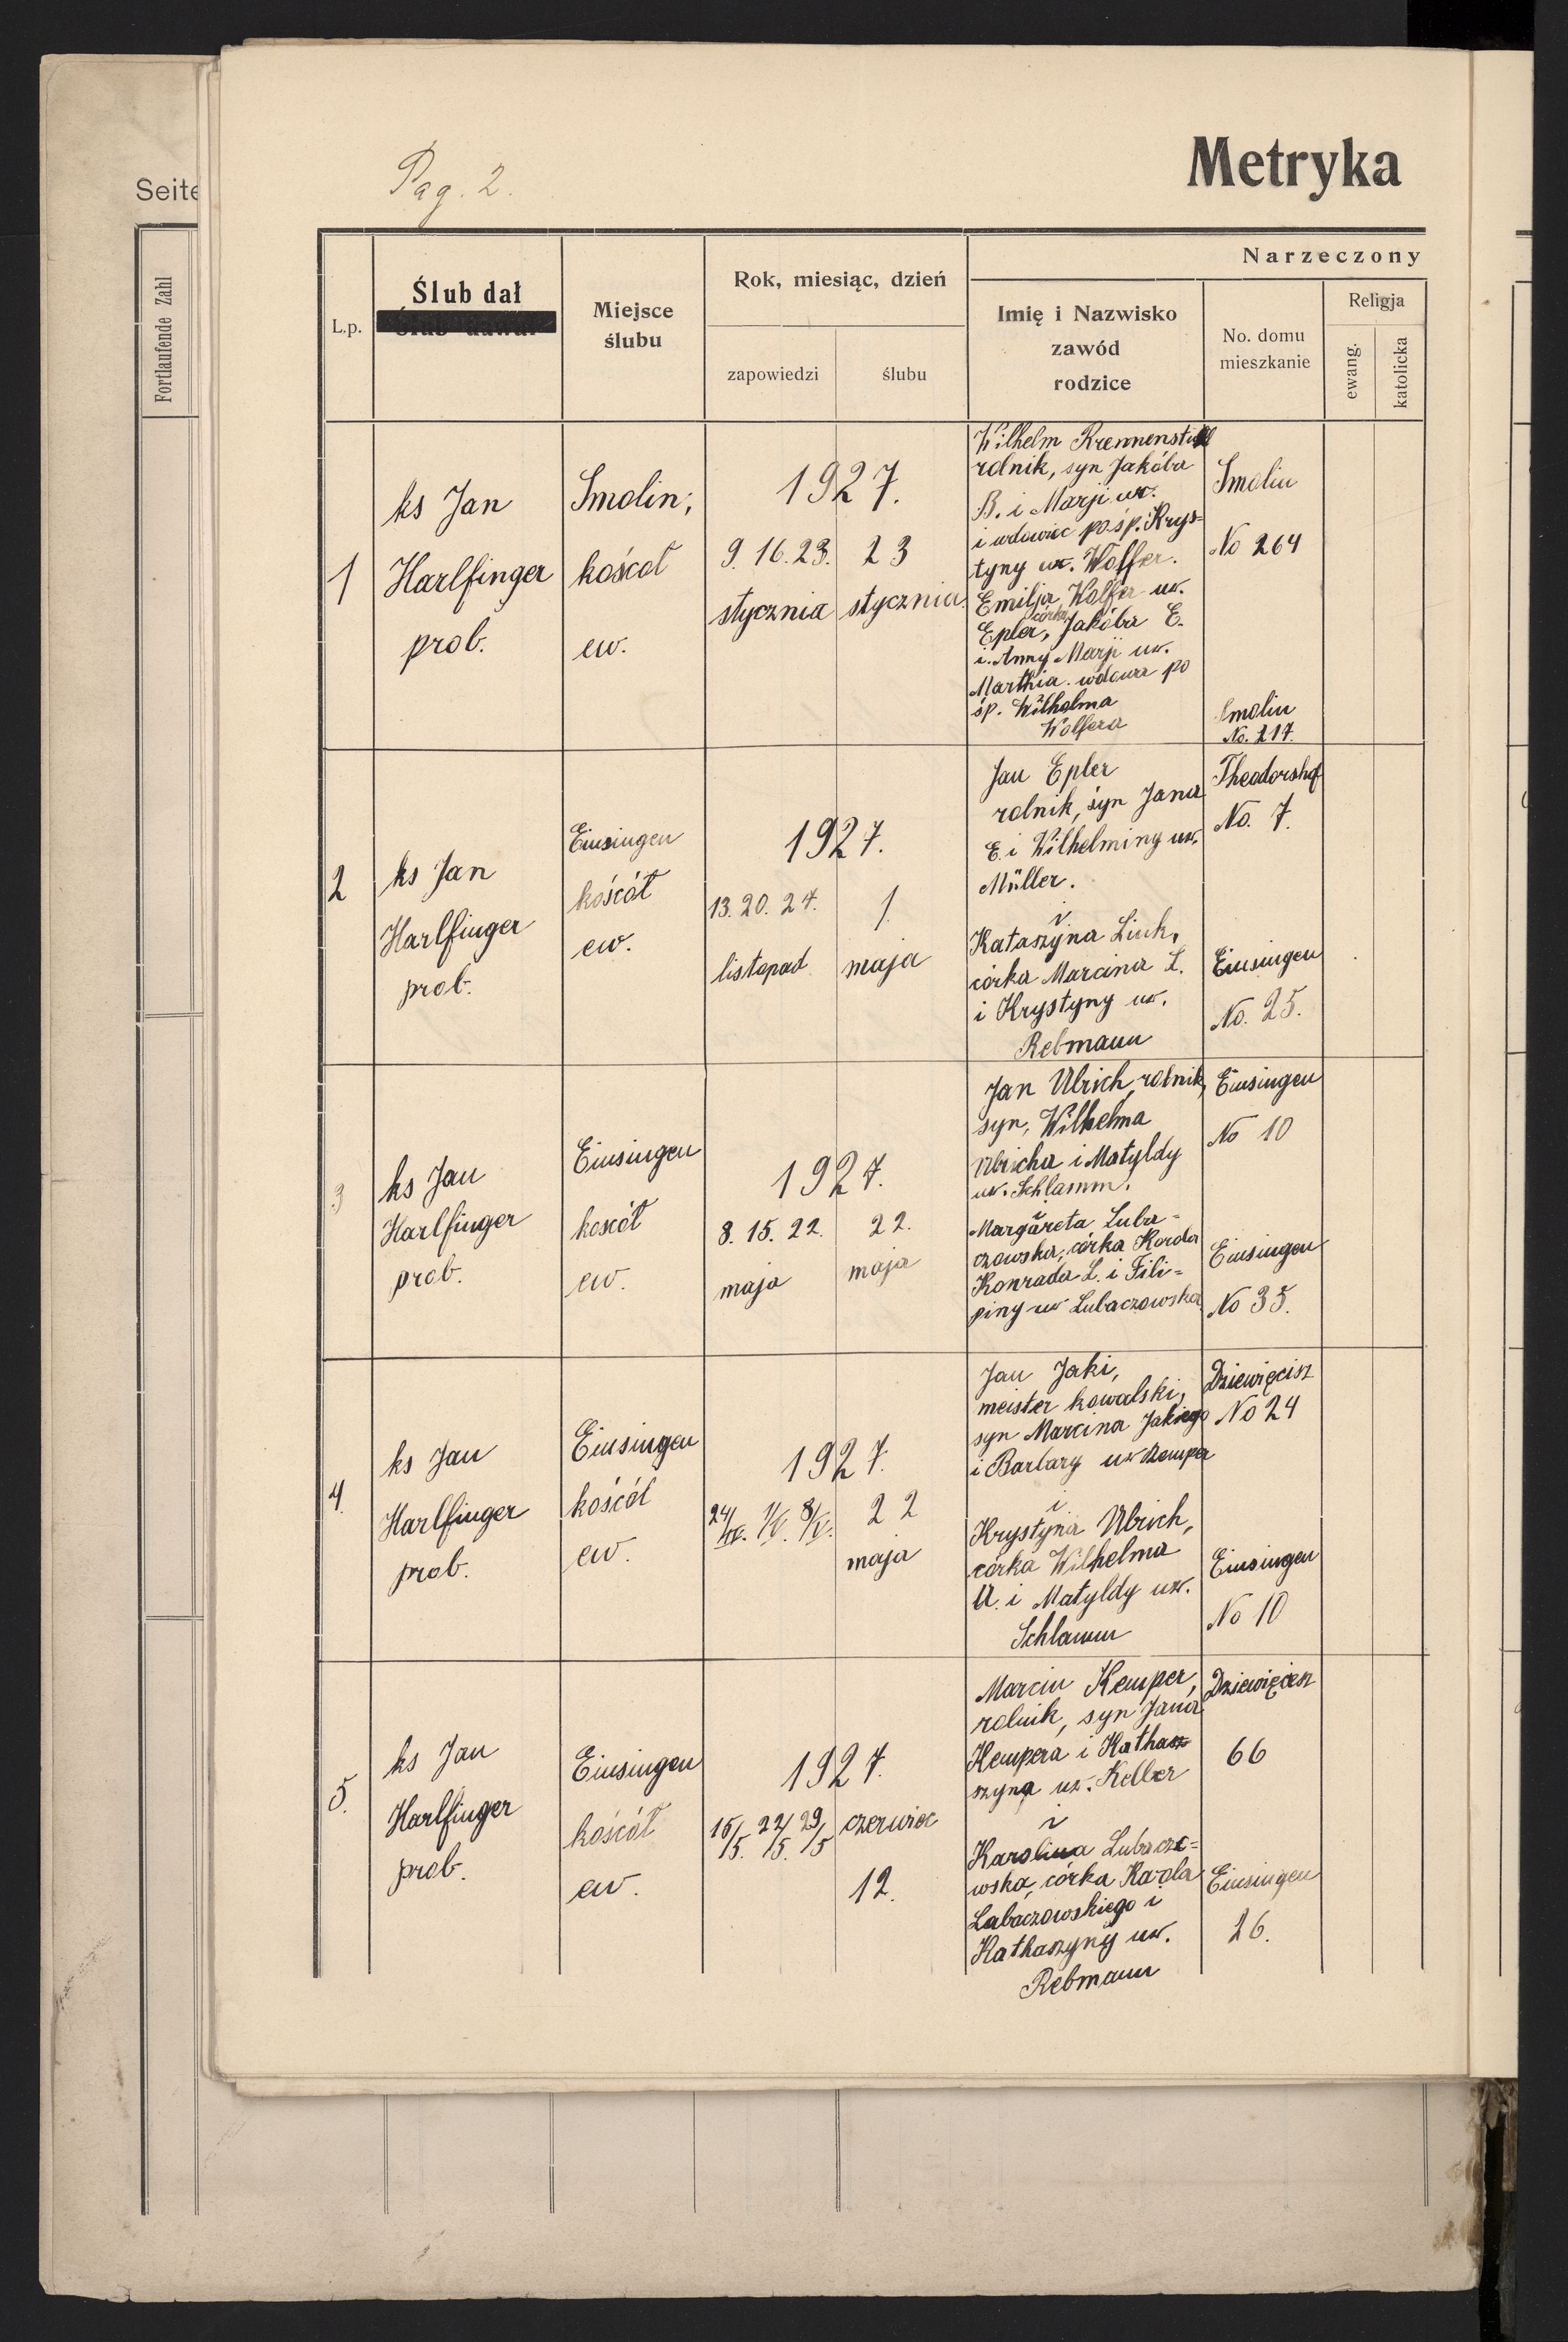 Seite
Fortlaufende Zahl
Pag. 2.
Metryka
L.p.
Ślub dał
Miejsce
ślubu
Rok, miesiąc, dzień
zapowiedzi
ślubu
Narzeczony
Imię i Nazwisko
zawód
rodzice
No. domu
mieszkanie
Religja
ewang.
katolicka
1
ks Jan
Harlfinger
prob.
Smolin,
kościoł
ew.
1927.
9. 16. 23.
stycznia
23
stycznia
Wilhelm
rolnik, syn Jakóba
B. i Marji ur.
i wdowiec po śp. Krys-
tyny ur. Wolfer.
Emilja Wolfer ur.
córka
Epler, Jakóba E.
i Anny Marji ur.
Marthia wdowa po
śp. Wilhelma
Wolfera
Smolin
No 264
Smolin
No. 217.
2
ks Jan
Harlfinger
prob.
Einsingen
kościół
ew.
1927.
13. 20. 27.
listopad
1.
maja
Jan Epler
rolnik, syn Jana
E. i Wilhelminy ur.
Müller.
i
Kataszyna Link,
córka Marcina L.
i Krystyny ur.
Rebmann
Theodorshof
No. 7.
Einsingen
No. 25.
3
ks Jan
Harlfinger
prob.
Einsingen
kosciół
ew.
1927.
8. 15. 22.
maja
22.
maja
Jan Ulrich, rolnik,
syn, Wilhelma
Ulricha i Matyldy
ur. Schlamm.
i
Margareta Luba-
czowska, córka
Konrada L. i Fili-
piny ur Lubaczowska
Einsingen
No 10
Einsingen
No 35.
4.
ks Jan
Harlfinger
prob.
Einsingen
kościół
ew.
1927.
24/IV. 1/V. 8/V.
22
maja
Jan Jaki,
meister kowalski,
syn Marcina Jakiego
i Barbary ur
i
Krystyna Ulrich,
córka Wilhelma
U. i Matyldy ur.
Schlamm
Dziewięcisz
No 24
Einsingen
No 10
5.
ks Jan
Harlfinger
prob.
Einsingen
kościół
ew.
1927.
15/5. 22/5. 29/5
czerwiec
12.
Marcin Kemper,
rolnik, syn Jana
Kempera i Kathasz
szyna ur. Keller
i
Karolina Lubaczo-
wska, córka Karola
Labaczowskiego i
Kathaszyny ur.
Rebmann
Dziewięcisz
66
Einsingen
26.